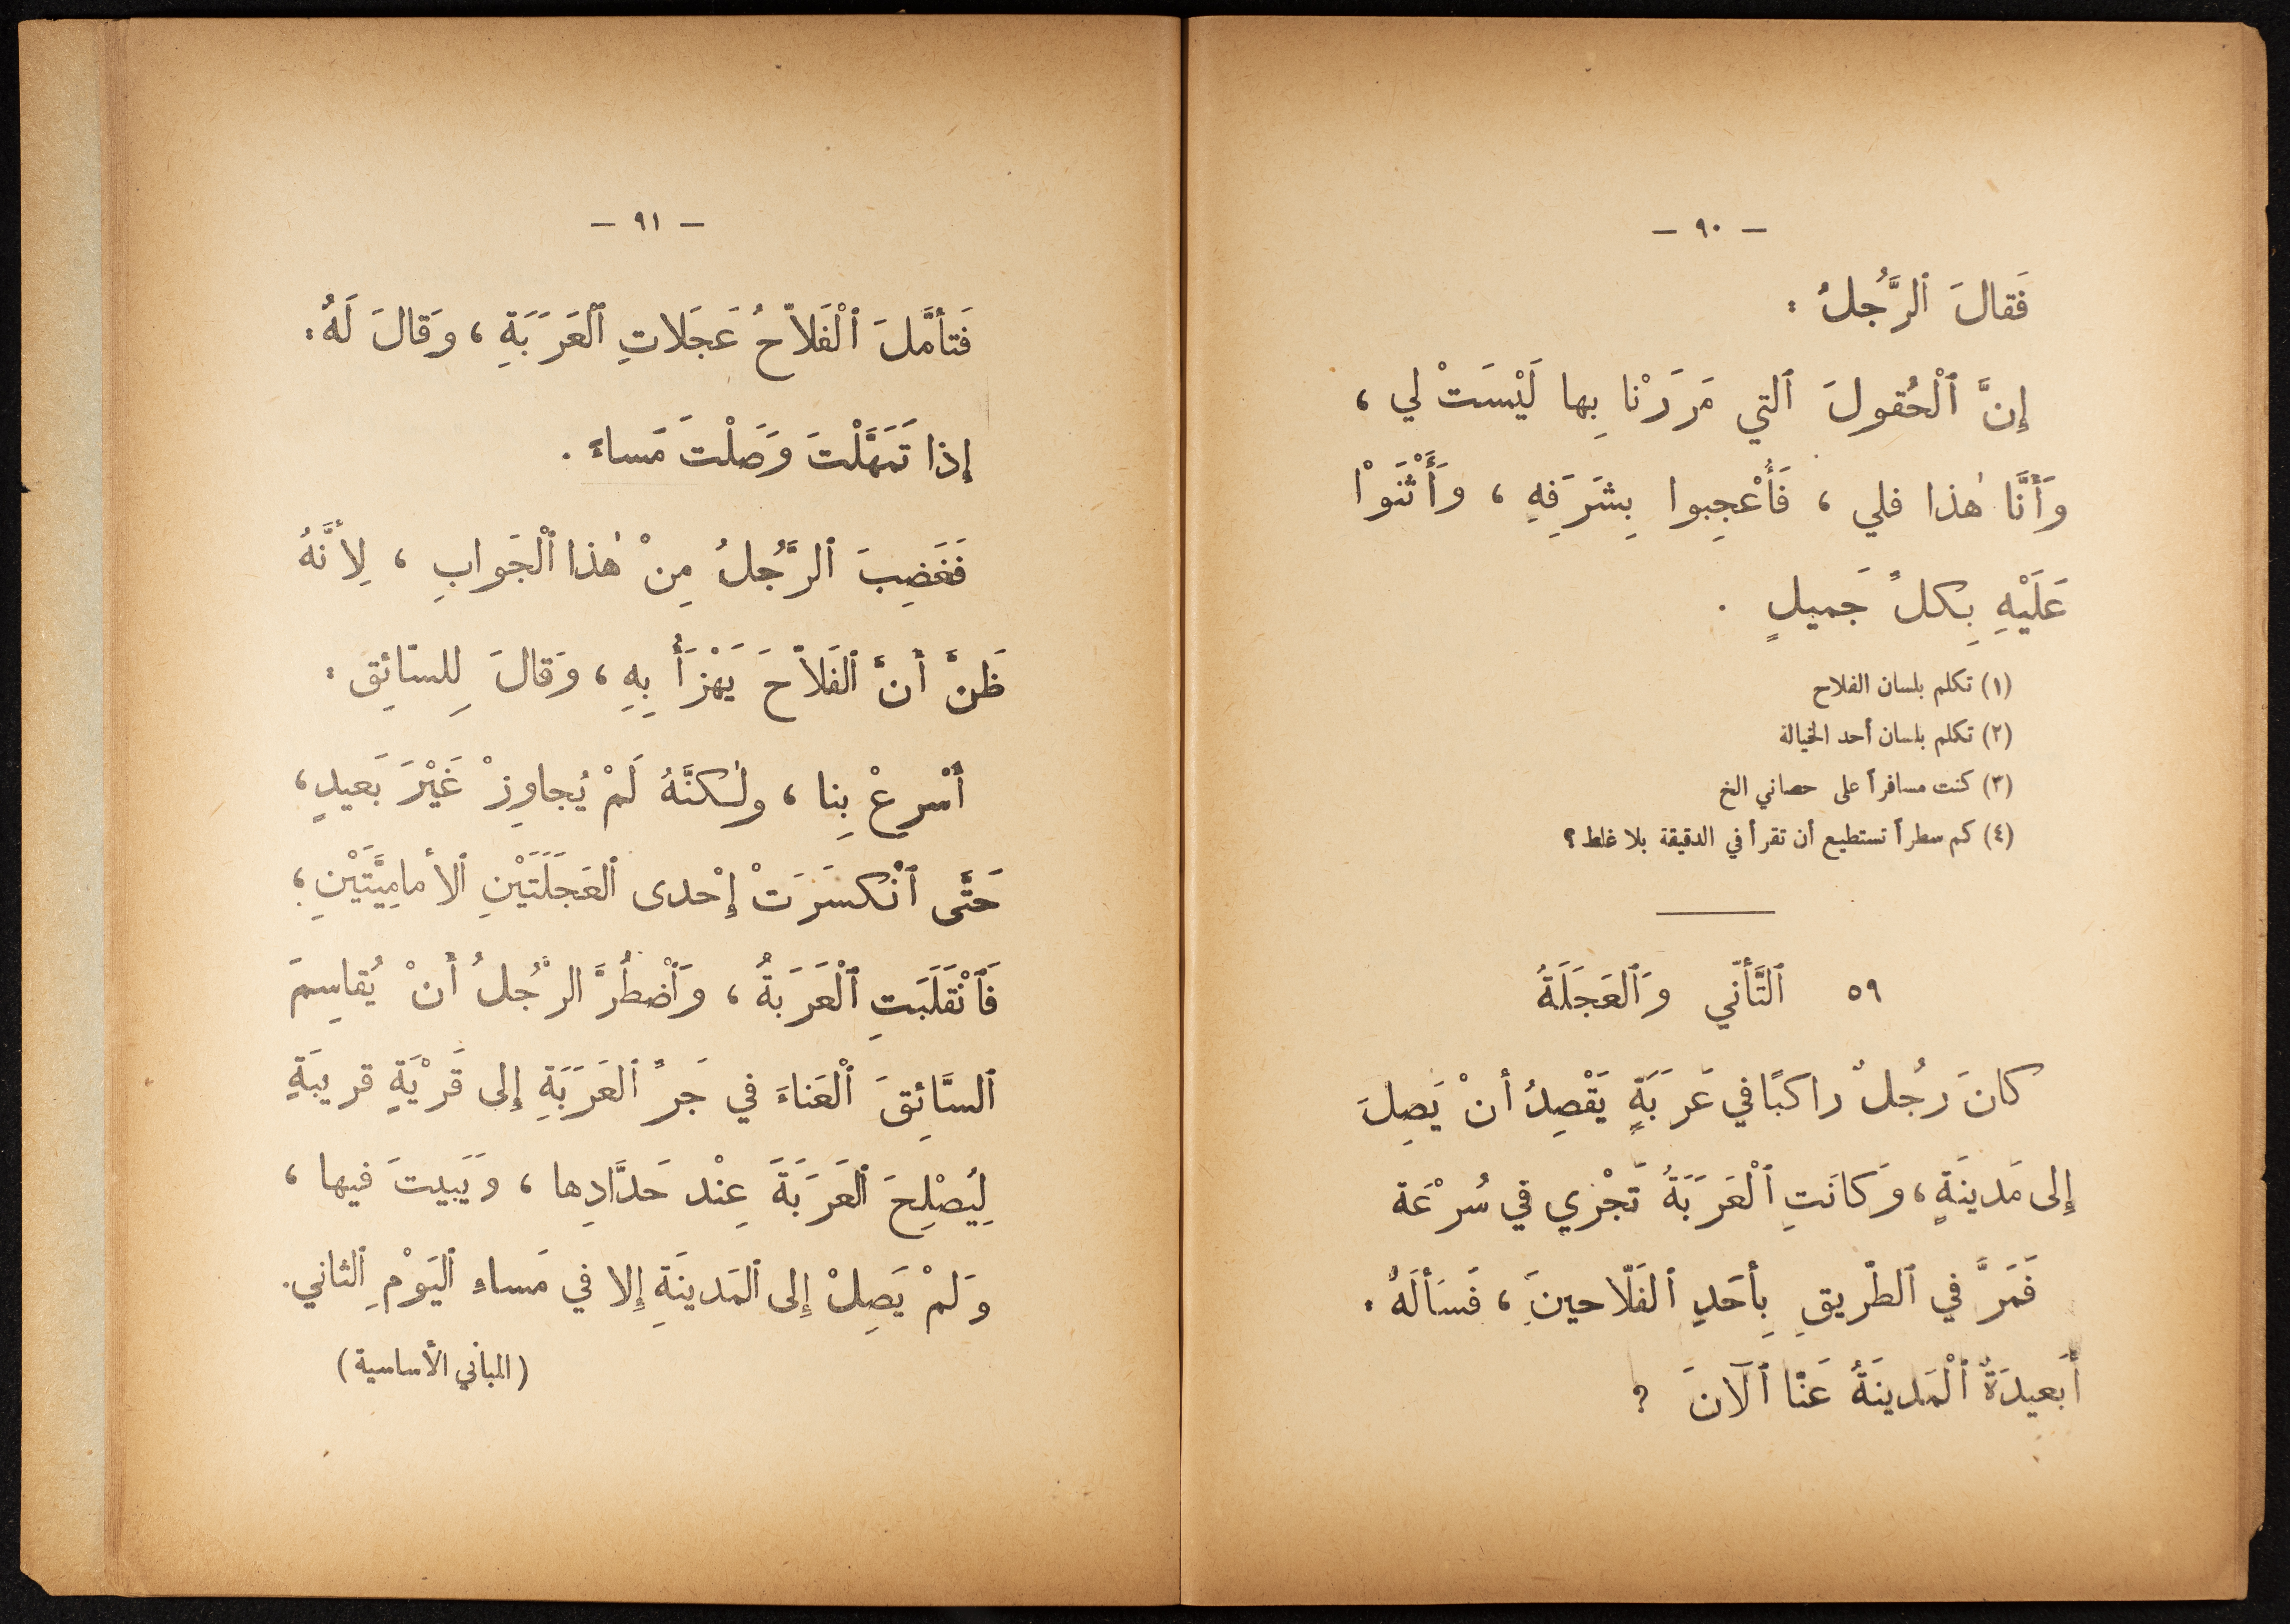 — ٩٠ —
فَقالَ ٱلرَّجُلُ :
إِنَّ ٱلْحُقولَ ٱلتي مَرَرْنا بِها لَيْسَتْ لي ،
وَأَنَّا هٰذا فلي ، فَأُعْجِبوا بِشَرَفِهِ ، وَأَثْنَوْا
عَلَيْهِ بِكلِّ جَميلٍ .
(١) تكلم بلسان الفلاح
(٢) تكلم بلسان أحد الخيالة
(٣) كنت مسافراً على حصاني الخ
(٤) كم سطراً تستطيع أن تقرأ في الدقيقة بلا غلط ؟
٥٩ ٱلتَّأنّي وَٱلعَجَلَةُ
كانَ رَجُلٌ راكبًا في عَرَبَةٍ يَقْصِدُ أنْ يَصِلَ
إِلى مَدينَةٍ ، وَكانَتِ ٱلْعَرَبَةُ تَجْري في سُرْعَة
فَمَرَّ في ٱلطّريقِ بِأحَدِ ٱلفَلّاحينَ ، فَسَألَهُ :
أَبَعيدَةٌ ٱلْمَدينَةُ عَنّا ٱلآنَ ؟
— ٩١ —
فَتأمَّلَ ٱلْفَلاّحُ عَجَلاتِ ٱلعَرَبَةِ ، وَقالَ لَهُ :
إِذا تَمَهَّلْتَ وَصَلْتَ مَساءً .
فَغَضِبَ ٱلرَّجُلُ مِنْ هٰذا ٱلْجَوابِ ، لِأنَّهُ
ظَنَّ أَنَّ ٱلفَلاّحَ يَهْزَأُ بِهِ ، وَقالَ لِلسّائِق :
أَسْرِعْ بِنا ، ولٰكنَّهُ لَمْ يُجاوِزْ غَيْرَ بَعيدٍ ،
حَتَّى ٱنْكسَرَتْ إِحْدى ٱلعَجَلَتَيْنِ ٱلأمامِيَّتَيْنِ ،
فَٱنْقَلَبَتِ ٱلْعَرَبَةُ ، وَٱضْطُرَّ الرَّجُلُ أَنْ يُقاسِمَ
ٱلسَّائِقَ ٱلْعَناءَ في جَرِّ ٱلعَرَبَةِ إِلى قَرْيَةٍ قريبَةٍ
لِيُصْلِحَ ٱلعَرَبَةَ عِنْد حَدَّادِها ، وَيَبيتَ فيها ،
وَلَمْ يَصِلْ إِلى ٱلمَدينَةِ إِلا في مَساءِ ٱليَوْمِ ٱلثاني .
(المباني الأساسية)